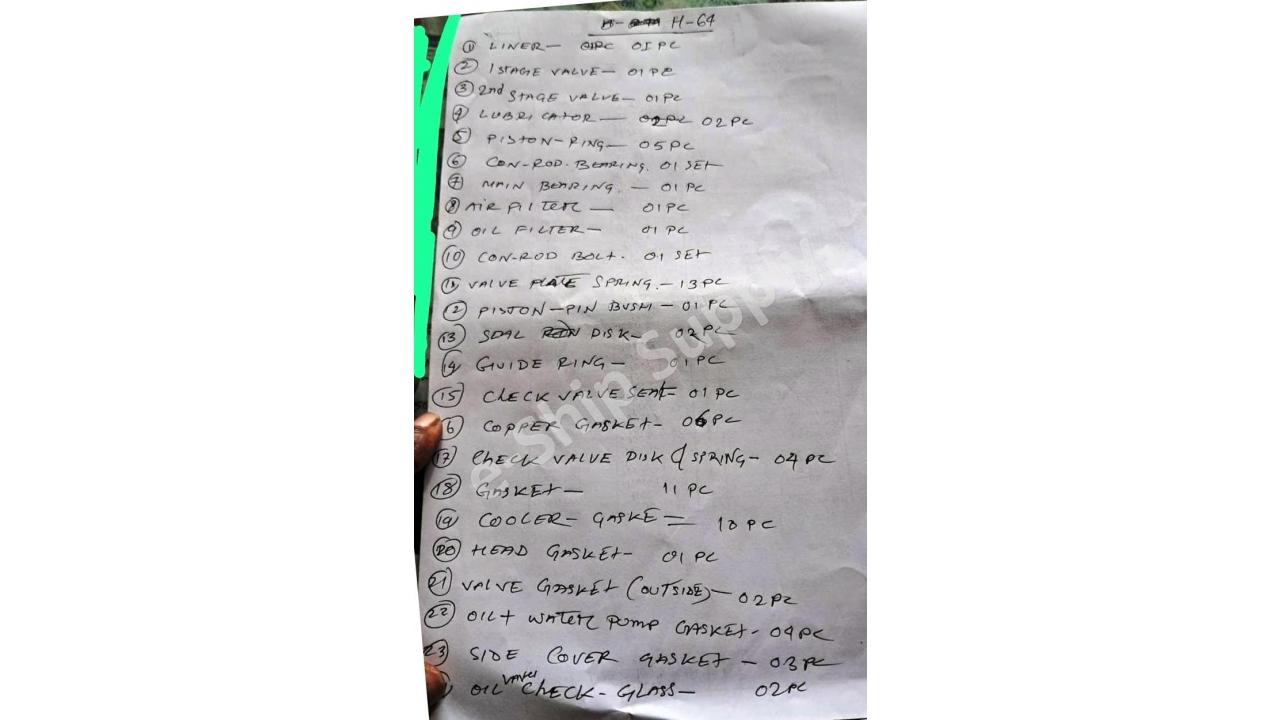 H-64
① LINER— 01PC
② 1STAGE VALVE— 01 PC
③ 2nd STAGE VALVE— 01 PC
④ LUBRICATOR— 02 PC
⑤ PISTON-RING— 05 PC
⑥ CON-ROD. BEARING. 01 SET
⑦ MAIN BEARING. — 01 PC
⑧ AIR FILTER — 01 PC
⑨ OIL FILTER— 01 PC
⑩ CON-ROD BOLT. 01 SET
⑪ VALVE PLATE SPRING.— 13 PC
⑫ PISTON-PIN BUSH — 01 PC
⑬ SEAL DISK— 02 PC
⑭ GUIDE RING— 01 PC
⑮ CHECK VALVE SEAT— 01 PC
6 COPPER GASKET— 06 PC
⑰ CHECK VALVE DISK & SPRING— 04 PC
⑱ GASKET— 11 PC
⑲ COOLER— GASKE= 10 PC
⑳ HEAD GASKET— 01 PC
㉑ VALVE GASKET (OUTSIDE)— 02 PC
㉒ OIL + WATER PUMP GASKET— 04 PC
㉓ SIDE COVER GASKET — 03 PC
OIL CHECK-GLASS— 02 PC
e-Ship Supply